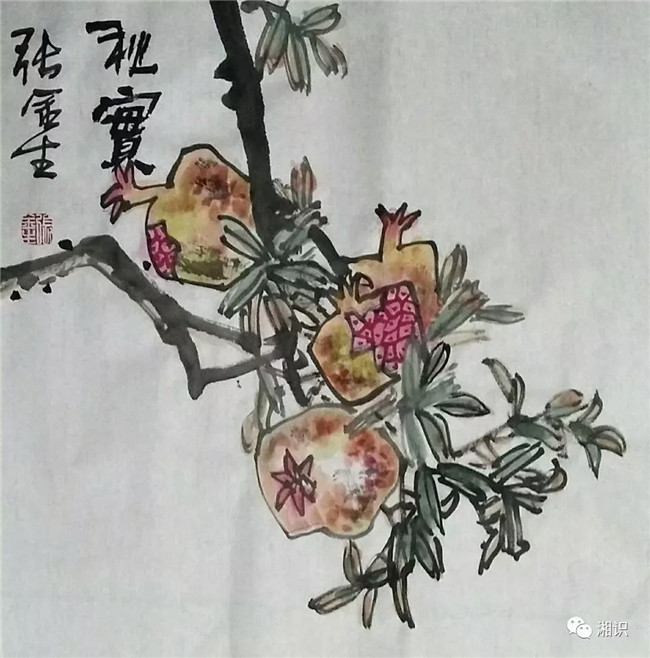 秋實
张金生
湘识